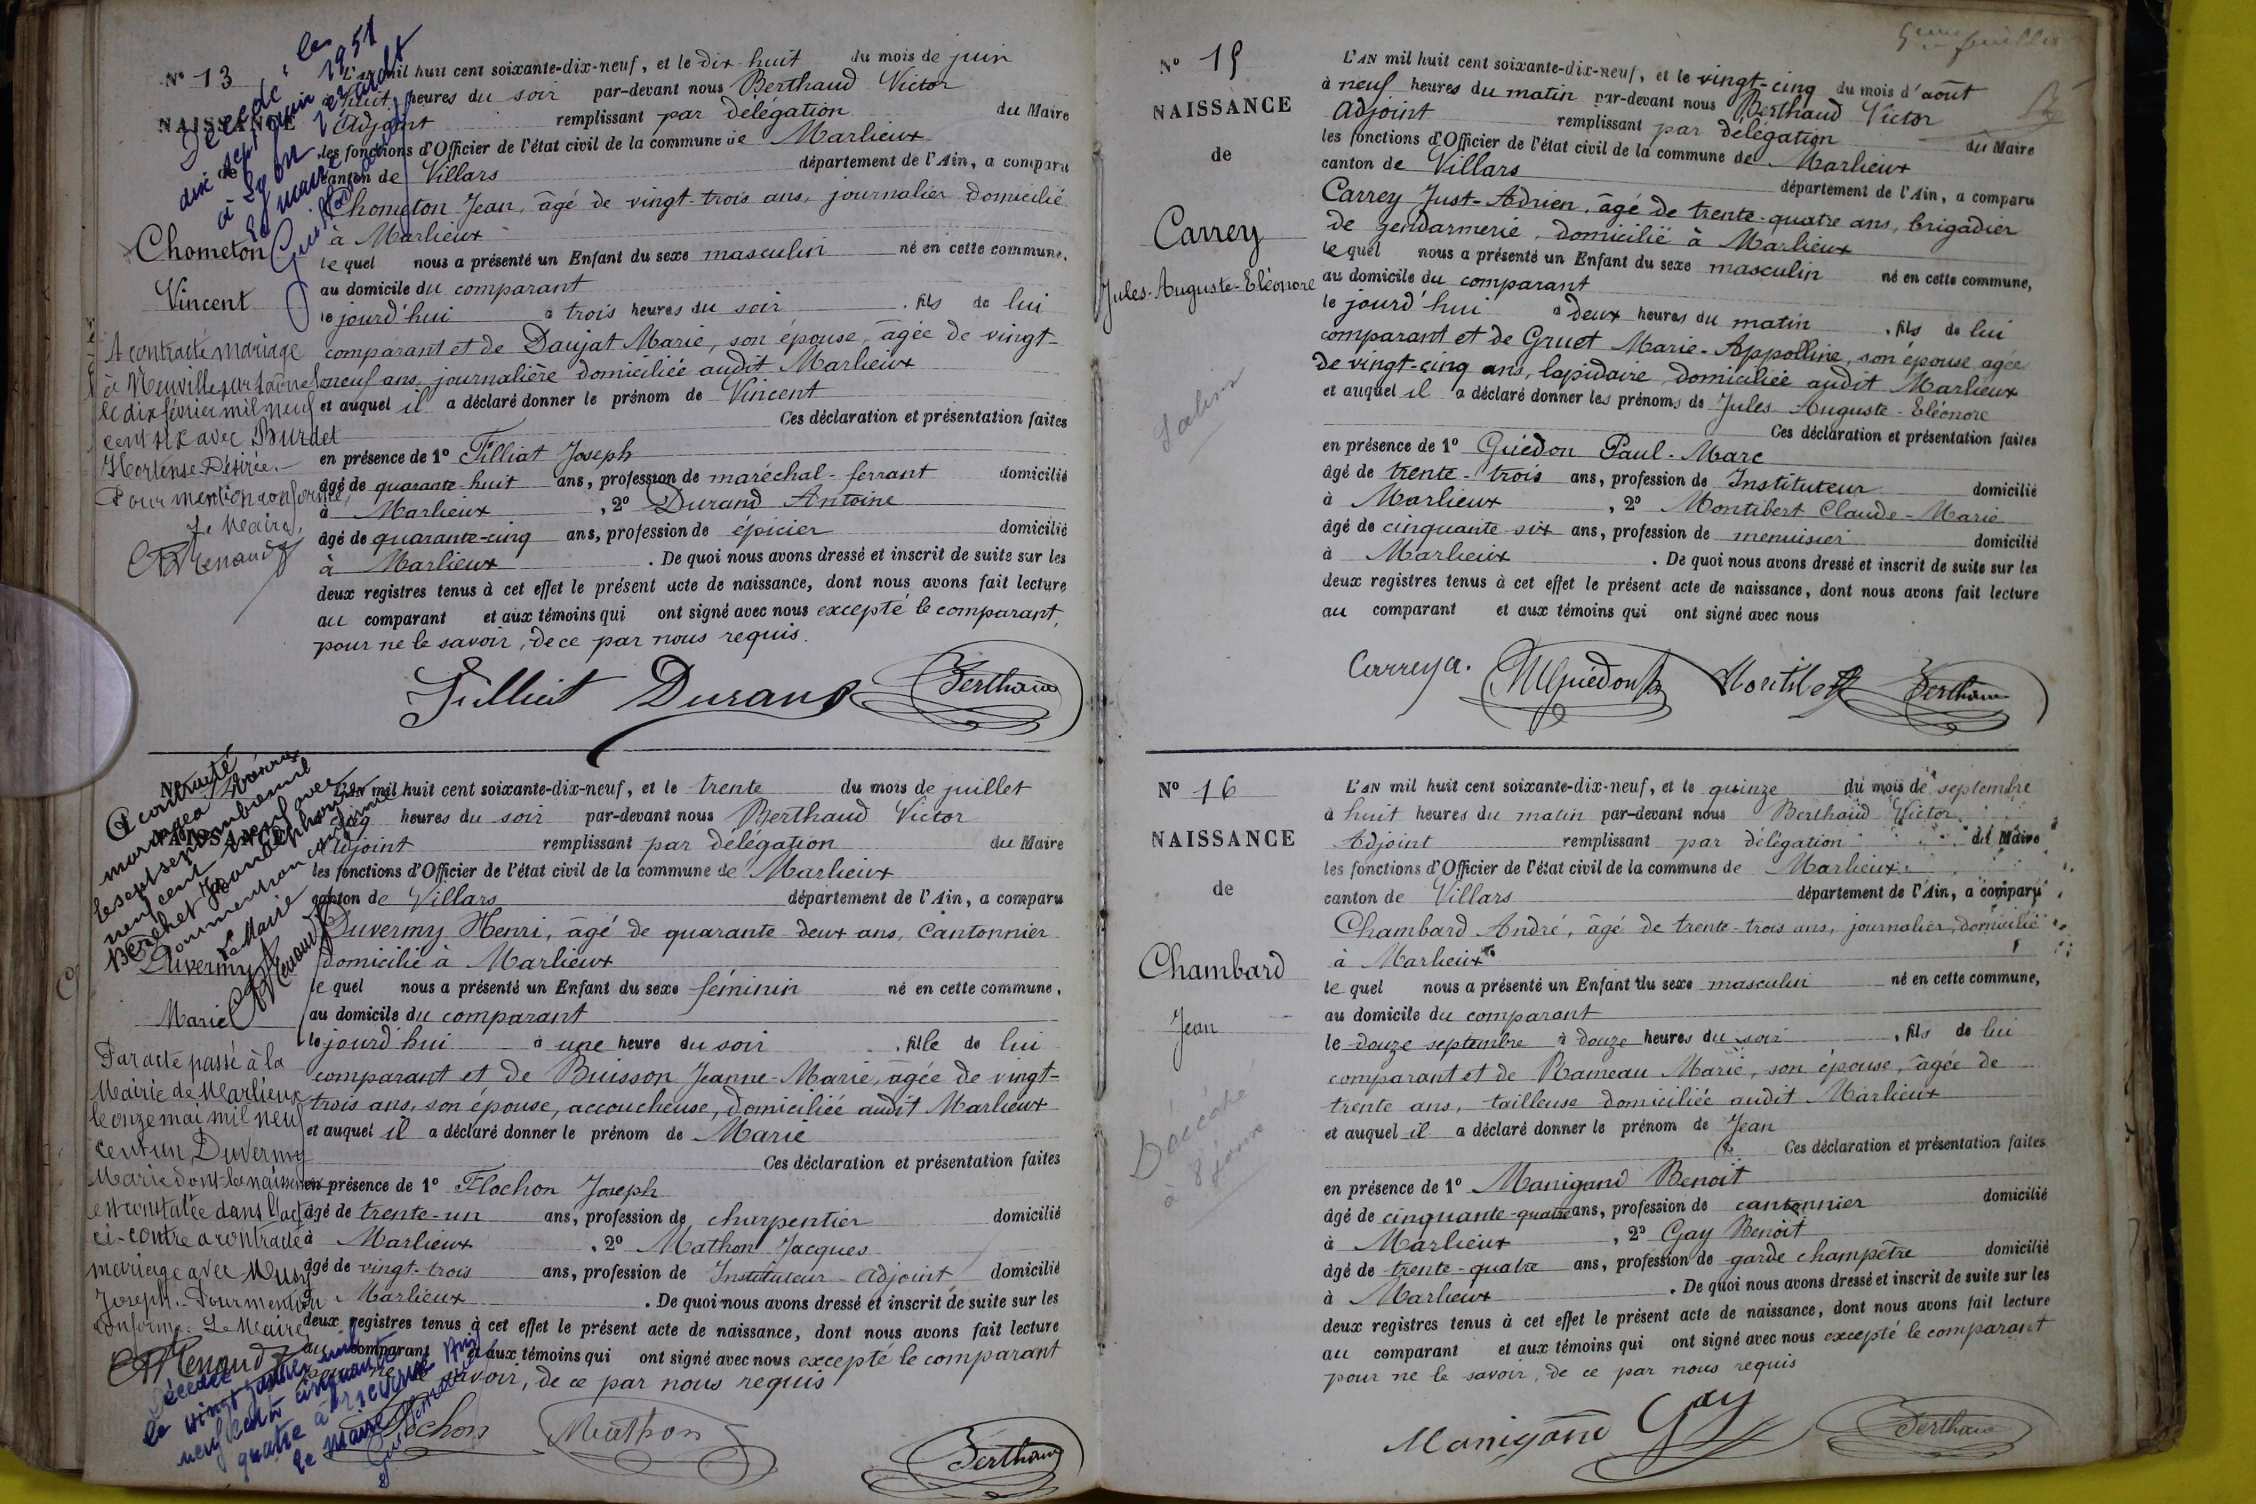 N° 13
NAISSANCE
de
Chometon
Vincent
Décédé le
dix sept juin 1951
à Lyon
Le maire
A contracté mariage
à Neuville sur Saône
le dix février mil neuf
cent six avec Burdet
Hortense Désirée.
Pour mention conforme,
Le Maire,
CRenaud
L'AN mil huit cent soixante-dix-neuf, et le dix-huit du mois de juin
à huit heures du soir par-devant nous Berthaud Victor
Adjoint remplissant par délégation du Maire
les fonctions d'Officier de l'état civil de la commune de Marlieux
canton de Villars département de l'Ain, a comparu
Chometon Jean, âgé de vingt-trois ans, journalier domicilié
à Marlieux
lequel nous a présenté un Enfant du sexe masculin né en cette commune,
au domicile du comparant
le jourd'hui à trois heures du soir, fils de lui
comparant et de Daujat Marie, son épouse, âgée de vingt-
neuf ans, journalière domiciliée audit Marlieux
et auquel il a déclaré donner le prénom de Vincent
Ces déclaration et présentation faites
en présence de 1° Filliat Joseph
âgé de quarante-huit ans, profession de maréchal-ferrant domicilié
à Marlieux, 2° Durand Antoine
âgé de quarante-cinq ans, profession de épicier domicilié
à Marlieux. De quoi nous avons dressé et inscrit de suite sur les
deux registres tenus à cet effet le présent acte de naissance, dont nous avons fait lecture
au comparant et aux témoins qui ont signé avec nous excepté le comparant,
pour ne le savoir, de ce par nous requis.
Filliat Durand Berthaud
NAISSANCE
Duvermy
Marie
A contracté
mariage à
le sept septembre mil
neuf cent neuf avec
Berchet Jean
Pour mention conforme
Le Maire
CRenaud
Par acte passé à la
Mairie de Marlieux
le onze mai mil neuf
cent un, Duvermy
Marie dont la naissance
est constatée dans l'acte
ci-contre a contracté
mariage avec Musy
Joseph. Pour mention
conforme. Le Maire,
CRenaud
Décédée
le vingt janvier mil
neuf cent cinquante
quatre à
le maire
L'AN mil huit cent soixante-dix-neuf, et le trente du mois de juillet
à cinq heures du soir par-devant nous Berthaud Victor
Adjoint remplissant par délégation du Maire
les fonctions d'Officier de l'état civil de la commune de Marlieux
canton de Villars département de l'Ain, a comparu
Duvermy Henri, âgé de quarante deux ans, Cantonnier
domicilié à Marlieux
lequel nous a présenté un Enfant du sexe féminin né en cette commune,
au domicile du comparant
le jourd'hui à une heure du soir, fille de lui
comparant et de Buisson Jeanne-Marie, âgée de vingt-
trois ans, son épouse, accoucheuse, domiciliée audit Marlieux
et auquel il a déclaré donner le prénom de Marie
Ces déclaration et présentation faites
en présence de 1° Flochon Joseph
âgé de trente-un ans, profession de charpentier domicilié
à Marlieux, 2° Mathon Jacques
âgé de vingt-trois ans, profession de Instituteur-adjoint domicilié
à Marlieux. De quoi nous avons dressé et inscrit de suite sur les
deux registres tenus à cet effet le présent acte de naissance, dont nous avons fait lecture
au comparant et aux témoins qui ont signé avec nous excepté le comparant
pour ne le savoir, de ce par nous requis
Flochon Mathon Berthaud
N° 15
NAISSANCE
de
Carrey
Jules-Auguste-Eléonore
L'AN mil huit cent soixante-dix-neuf, et le vingt-cinq du mois d'août
à neuf heures du matin par-devant nous Berthaud Victor
Adjoint remplissant par délégation du Maire
les fonctions d'Officier de l'état civil de la commune de Marlieux
canton de Villars département de l'Ain, a comparu
Carrey Just-Adrien, âgé de trente-quatre ans, brigadier
de gendarmerie, domicilié à Marlieux
lequel nous a présenté un Enfant du sexe masculin né en cette commune,
au domicile du comparant
le jourd'hui à deux heures du matin, fils de lui
comparant et de Gruet Marie-Appolline, son épouse agée
de vingt-cinq ans, lapidaire domiciliée audit Marlieux
et auquel il a déclaré donner les prénoms de Jules Auguste-Eléonore
Ces déclaration et présentation faites
en présence de 1° Guédon Paul-Marc
âgé de trente-trois ans, profession de Instituteur domicilié
à Marlieux, 2° Montibert Claude-Marie
âgé de cinquante-six ans, profession de menuisier domicilié
à Marlieux. De quoi nous avons dressé et inscrit de suite sur les
deux registres tenus à cet effet le présent acte de naissance, dont nous avons fait lecture
au comparant et aux témoins qui ont signé avec nous
Carrey a. Guédon Montibert Berthaud
N° 16
NAISSANCE
de
Chambard
Jean
L'AN mil huit cent soixante-dix-neuf, et le quinze du mois de septembre
à huit heures du matin par-devant nous Berthaud Victor
Adjoint remplissant par délégation du Maire
les fonctions d'Officier de l'état civil de la commune de Marlieux
canton de Villars département de l'Ain, a comparu
Chambard André, âgé de trente-trois ans, journalier, domicilié
à Marlieux
lequel nous a présenté un Enfant du sexe masculin né en cette commune,
au domicile du comparant
le douze septembre à douze heures du soir, fils de lui
comparant et de Rameau Marie, son épouse, âgée de
trente ans, tailleuse domiciliée audit Marlieux
et auquel il a déclaré donner le prénom de Jean
Ces déclaration et présentation faites
en présence de 1° Manigand Benoit
âgé de cinquante-quatre ans, profession de cantonnier domicilié
à Marlieux, 2° Gay Benoit
âgé de trente-quatre ans, profession de garde champêtre domicilié
à Marlieux. De quoi nous avons dressé et inscrit de suite sur les
deux registres tenus à cet effet le présent acte de naissance, dont nous avons fait lecture
au comparant et aux témoins qui ont signé avec nous excepté le comparant
pour ne le savoir, de ce par nous requis
Manigand Gay Berthaud